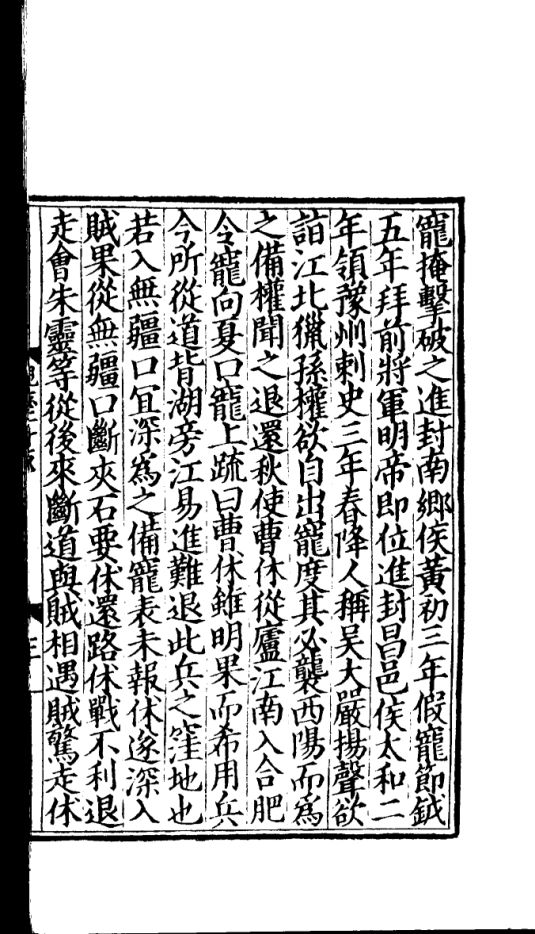 寵掩擊破之進封南鄉侯黃初三年假寵節鉞
五年拜前將軍明帝即位進封昌邑侯太和二
年領豫州刺史三年春降人稱吳大嚴揚聲欲
詣江北獵孫權欲自出寵度其必襲西陽而爲
之備權聞之退還秋使曹休從廬江南入合肥
令寵向夏口寵上疏曰曹休雖明果而希用兵
今所從道背湖旁江易進難退此兵之窪地也
若入無疆口宜深爲之備寵表未報休遂深入
賊果從無疆口斷夾石要休還路休戰不利退
走會朱靈等從後來斷道與賊相遇賊驚走休